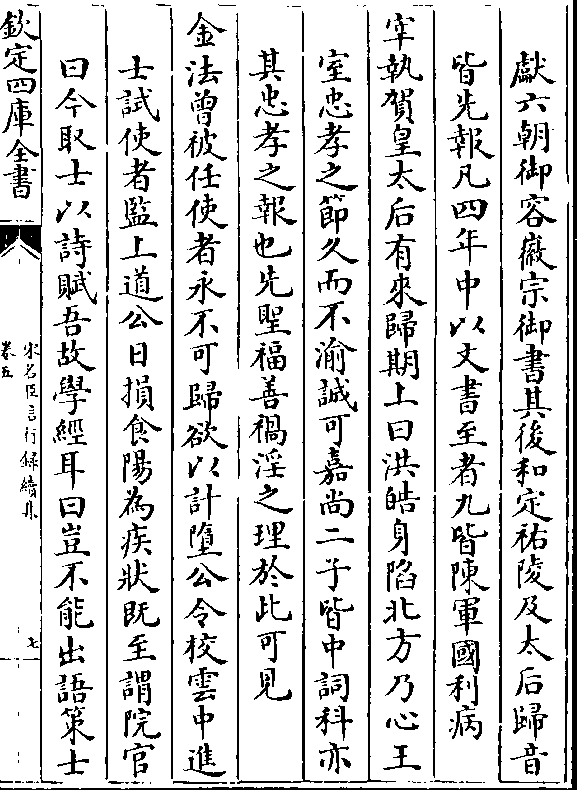 獻六朝御容徽宗御書其後和定祐陵及太后歸音
皆先報凡四年中以文書至者九皆陳軍國利病
宰執賀皇太后有來歸期上曰洪皓身陷北方乃心王
室忠孝之節久而不渝誠可嘉尚二子皆中詞科亦
其忠孝之報也先聖福善禍淫之理於此可見
金法曽被任使者永不可歸欲以計墮公令校雲中進
士試使者監上道公日損食陽為疾狀既至謂院官
曰今取士以詩賦吾故學經耳曰豈不能出語策士
欽定四庫全書
宋名臣言行録續集
卷五
七